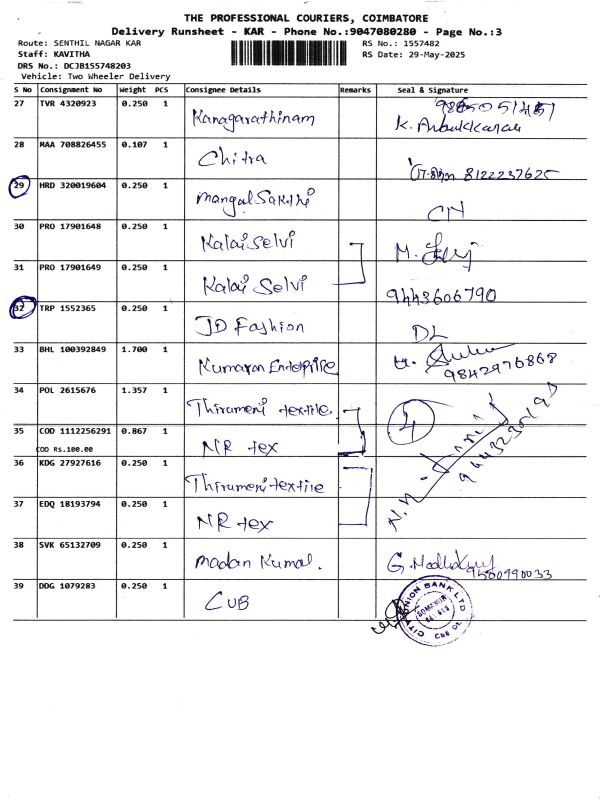 THE PROFESSIONAL COURIERS, COIMBATORE
Delivery Runsheet - KAR - Phone No.:9047080280 - Page No.:3
Route: SENTHIL NAGAR KAR RS No.: 1557482
Staff: KAVITHA RS Date: 29-May-2025
DRS No.: DCJB155748203
Vehicle: Two Wheeler Delivery
S No Consignment No Weight PCS Consignee Details Remarks Seal & Signature
27 TVR 4320923 0.250 1 Kanagarathinam
28 MAA 708826455 0.107 1 Chitra 8122237625
29 HRD 320019604 0.250 1 Mangal Sakthi CN
30 PRO 17901648 0.250 1 Kalai Selvi M.
31 PRO 17901649 0.250 1 Kalai Selvi 9443606790
32 TRP 1552365 0.250 1 JD Fashion DL
33 BHL 100392849 1.700 1 Kumaran Enterprise 9842976868
34 POL 2615676 1.357 1 Thirumeni textile 4
35 COD 1112256291 0.867 1 NR tex
COD Rs.100.00
36 KDG 27927616 0.250 1 Thirumeni textile
37 EDQ 18193794 0.250 1 NR tex
38 SVK 65132709 0.250 1 Madan Kumar. G. 9500990033
39 DDG 1079283 0.250 1 CUB
CITY UNION BANK LTD